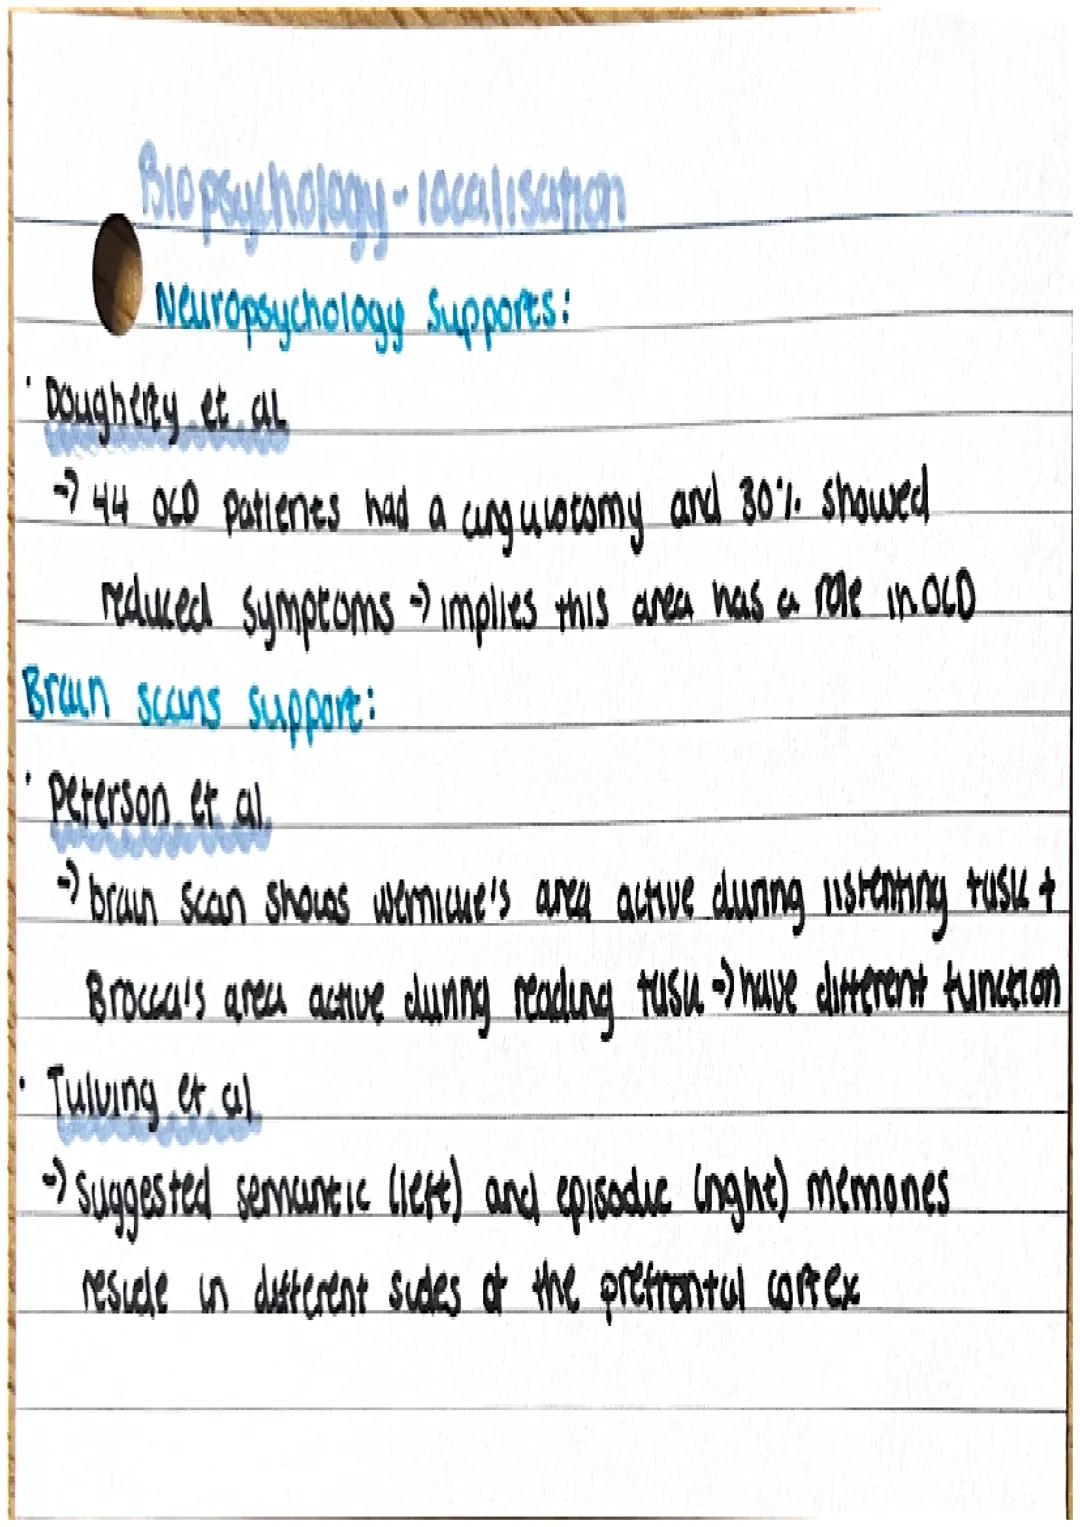 Biopsychology - localisation
Neuropsychology Supports:
· Dougherty et al
→ 44 OCD patients had a cingulotomy and 30% showed
reduced symptoms → implies this area has a role in OCD
Brain scans support:
· Peterson et al.
→ brain scan shows wernicke's area active during listening task +
Brocca's area active during reading task → have different function
· Tulving et al
→ suggested semantic (left) and episodic (right) memories
reside in different sides of the prefrontal cortex